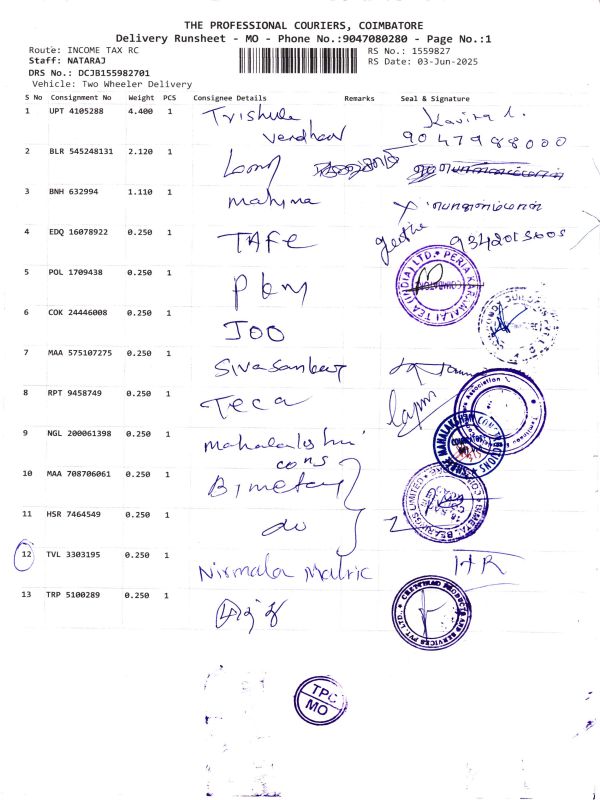 THE PROFESSIONAL COURIERS, COIMBATORE
Delivery Runsheet - MO - Phone No.:9047080280 - Page No.:1
Route: INCOME TAX RC
RS No.: 1559827
Staff: NATARAJ
RS Date: 03-Jun-2025
DRS No.: DCJB155982701
Vehicle: Two Wheeler Delivery
S No Consignment No Weight PCS Consignee Details Remarks Seal & Signature
1 UPT 4105288 4.400 1 Trishula Kavitha
Vardhaar 9047988000
2 BLR 545248131 2.120 1
3 BNH 632994 1.110 1 mahima
4 EDQ 16078922 0.250 1 TAFE geetha 9342015605
PERIA KARAMALAI TEA (INDIA) LTD.
5 POL 1709438 0.250 1
6 COK 24446008 0.250 1 JOO
7 MAA 575107275 0.250 1 Sivasankar
8 RPT 9458749 0.250 1 Teca
Association
9 NGL 200061398 0.250 1 mahalakshmi
cons
SHREE MAHALAKSHMI CONSTRUCTIONS
10 MAA 708706061 0.250 1 Bimetal
BIMETAL BEARINGS LIMITED
11 HSR 7464549 0.250 1 do 2
12 TVL 3303195 0.250 1 Nirmala Matric HR
13 TRP 5100289 0.250 1
CHETTINAD PRODUCTS AND SERVICES PVT. LTD.
TPC
MO